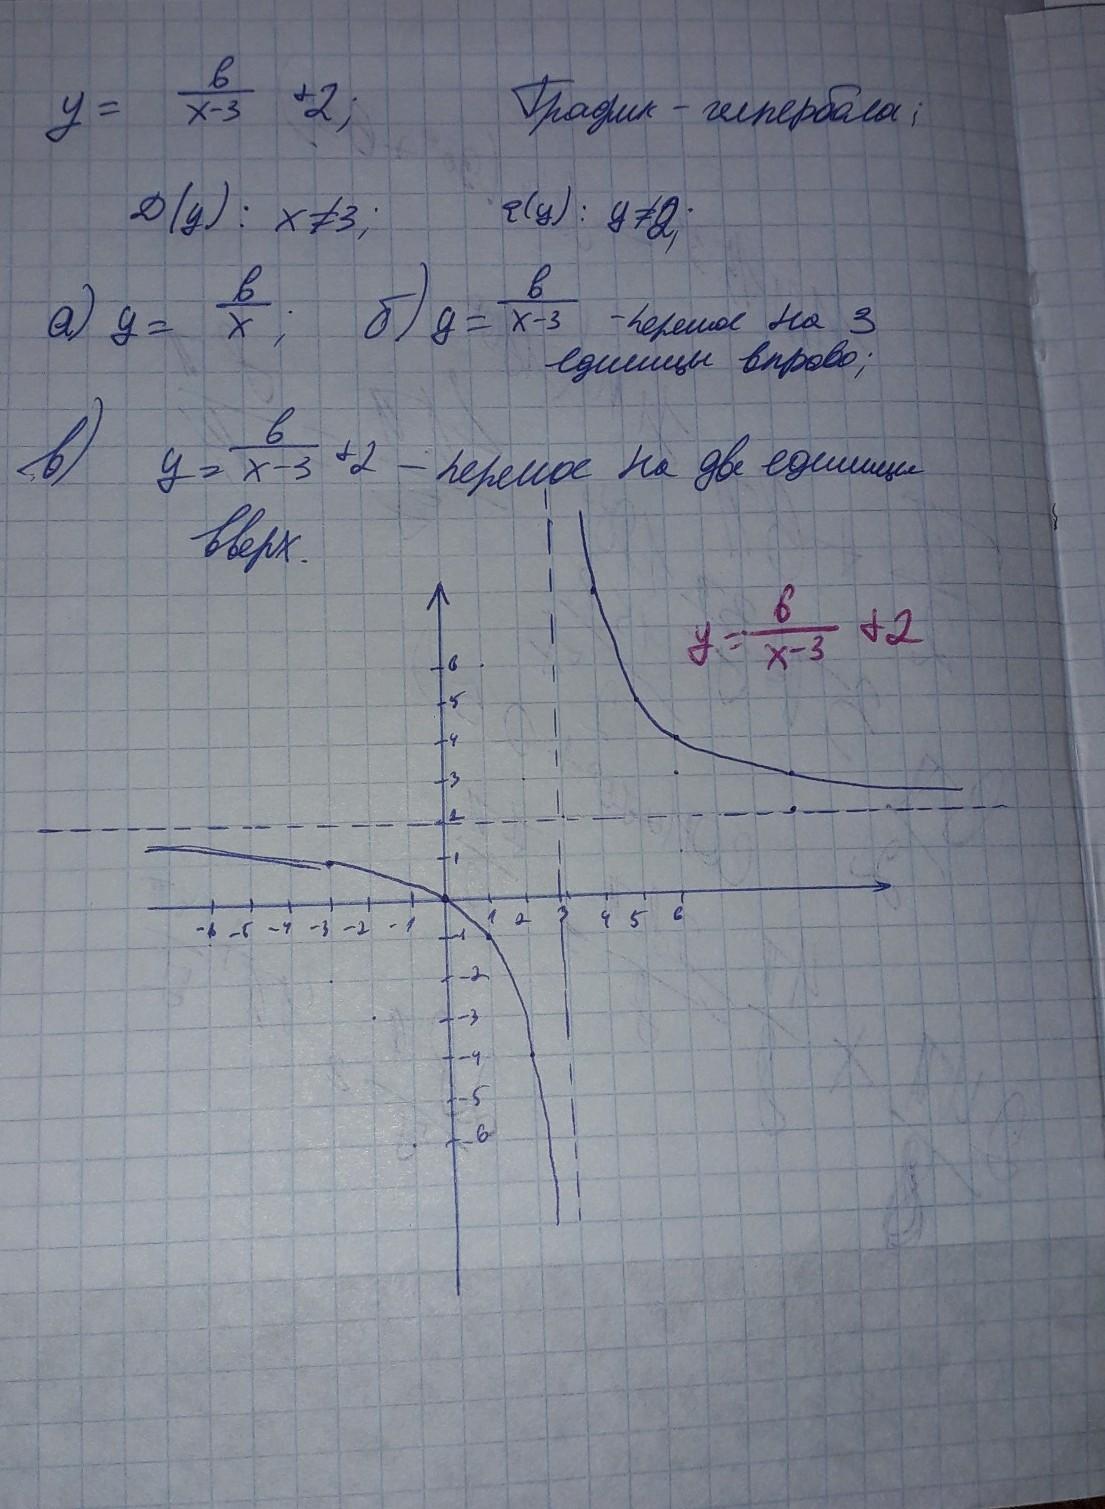 y = 6/(x-3) +2; График - гипербола;
D(y): x≠3; E(y): y≠2;
а) y = 6/x; б) y = 6/(x-3) - перенос на 3
единицы вправо;
в) y = 6/(x-3) +2 - перенос на две единицы
вверх.
y = 6/(x-3) +2
6
5
4
3
2
1
-6 -5 -4 -3 -2 -1 1 2 3 4 5 6
-1
-2
-3
-4
-5
-6